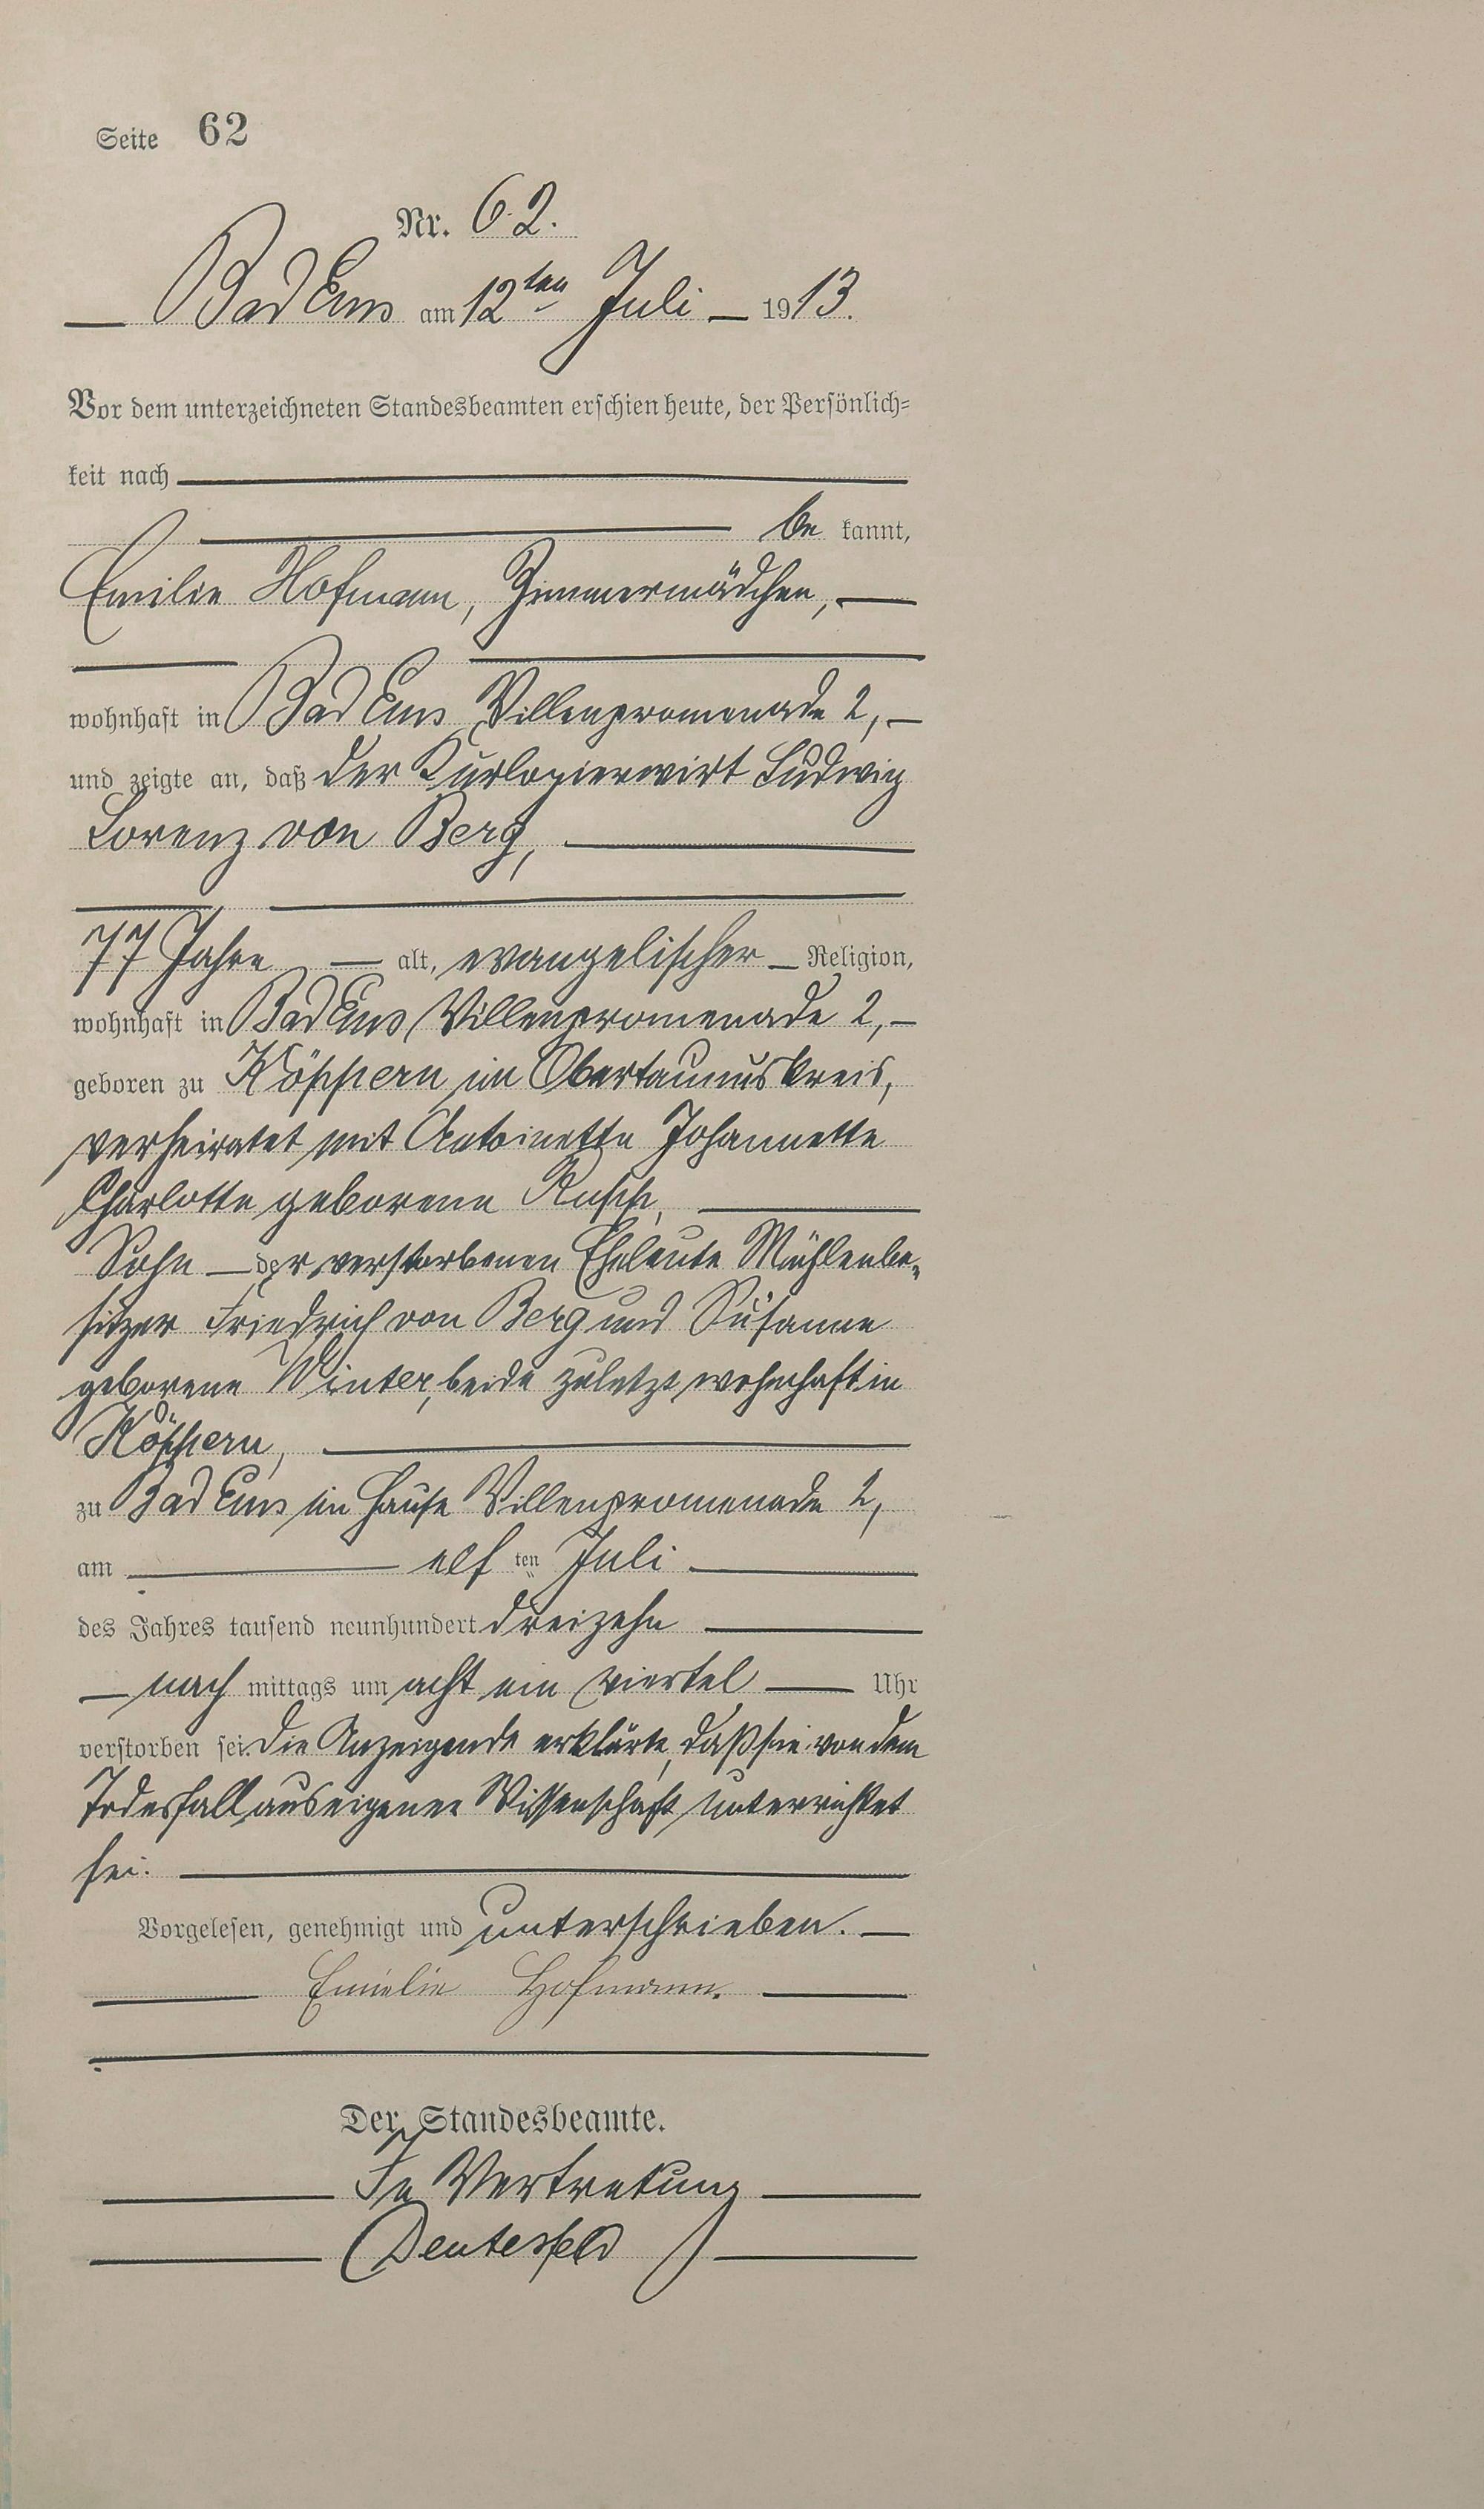 Seite 62
Nr. 62.
Bad Ems am 12ten Juli 1913.
Vor dem unterzeichneten Standesbeamten erschien heute, der Persönlich=
keit nach
be kannt,
Emilie Hofmann, Zimmermädchen,
wohnhaft in Bad Ems Villenpromenade 2,
und zeigte an, daß der Kurlogierwirt Ludwig
Lorenz von Berg,
77 Jahre alt, evangelischer Religion,
wohnhaft in Bad Ems Villenpromenade 2,
geboren zu Köppern im Obertaunuskreis,
verheiratet mit Antoinette Johannette
Charlotte geborene Rupp,
Sohn der verstorbenen Eheleute Mühlenbe=
sitzer Friedrich von Berg und Susanne
geborene Winter, beide zuletzt wohnhaft in
Köppern,
zu Bad Ems im Hause Villenpromenade 2,
am elf ten Juli
des Jahres tausend neunhundert dreizehn
nach mittags um acht ein viertel Uhr
verstorben sei. Die Anzeigende erklärte, daß sie von dem
Todesfall aus eigener Wissenschaft unterrichtet
sei.
Vorgelesen, genehmigt und unterschrieben.
Emielie Hofmann.
Der Standesbeamte.
In Vertretung